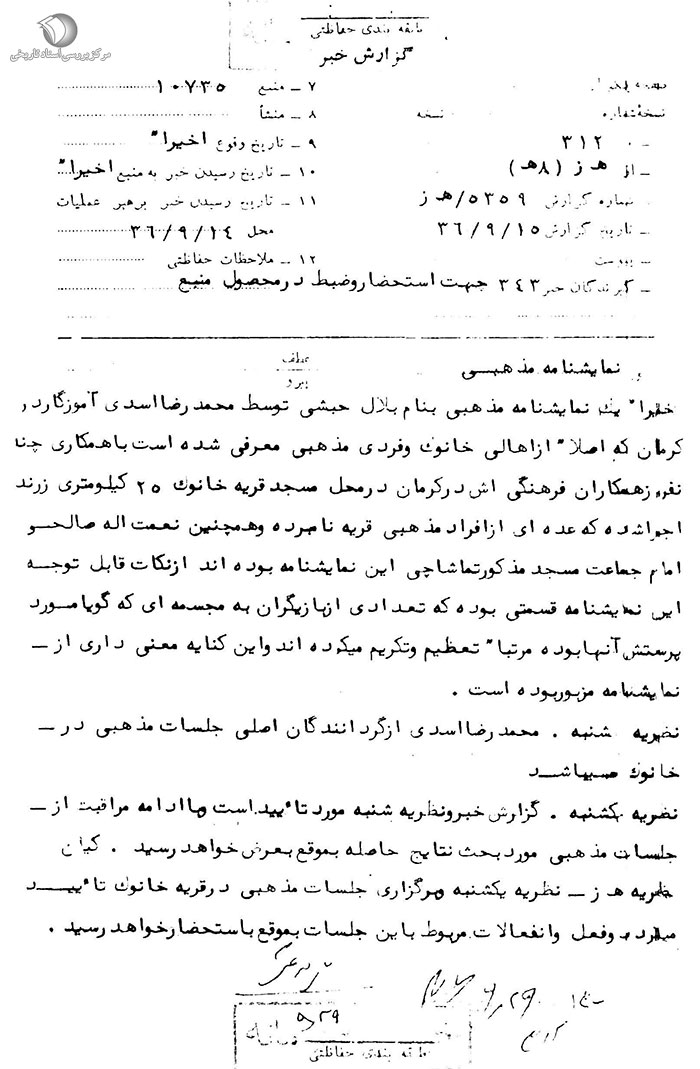 مرکز بررسی اسناد تاریخی
طبقه بندی حفاظتی
گزارش خبر
۷ ـ منبع ۱۰۷۳۵
نسخه شماره نسخه ۸ ـ منشأ
۳۱۲ ۹ ـ تاریخ وقوع اخیرا"
ـ از هـ ز (۸هـ) ۱۰ ـ تاریخ رسیدن خبر به منبع اخیرا"
ـ شماره گزارش ۵۳۵۹/هـ ز ۱۱ ـ تاریخ رسیدن خبر برهبر عملیات
ـ تاریخ گزارش ۳۶/۹/۱۵ محل ۳۶/۹/۱۴
ـ پیوست ۱۲ ـ ملاحظات حفاظتی
ـ گیرندگان خبر ۳۴۳ جهت استحضار وضبط درمحصول منبع
عطف
پیرو
نمایشنامه مذهبی
اخیرا" یک نمایشنامه مذهبی بنام بلال حبشی توسط محمد رضا اسدی آموزگار در
کرمان که اصلا" ازاهالی خانوک وفردی مذهبی معرفی شده است باهمکاری چند
نفر ازهمکاران فرهنگی اش درکرمان درمحل مسجد قریه خانوک ۲۵ کیلومتری زرند
اجرا شده که عده ای ازافراد مذهبی قریه نامبرده وهمچنین نعمت اله صالحی
امام جماعت مسجد مذکور تماشاچی این نمایشنامه بوده اند ازنکات قابل توجه
این نمایشنامه قسمتی بوده که تعدادی ازبازیگران به مجسمه ای که گویا مورد
پرستش آنها بوده مرتبا" تعظیم وتکریم میکرده اند واین کنایه معنی داری از ـ
نمایشنامه مزبور بوده است .
نظریه شنبه . محمد رضا اسدی ازگردانندگان اصلی جلسات مذهبی در ـ
خانوک میباشد
نظریه یکشنبه . گزارش خبر ونظریه شنبه مورد تائید است با ادامه مراقبت از ـ
جلسات مذهبی مورد بحث نتایج حاصله بموقع بعرض خواهد رسید . کیان
نظریه هـ ز ـ نظریه یکشنبه وبرگزاری جلسات مذهبی درقریه خانوک تائید
میگردد وفعل وانفعالات مربوط باین جلسات بموقع باستحضار خواهد رسید .
۳۱۲
طبقه بندی حفاظتی